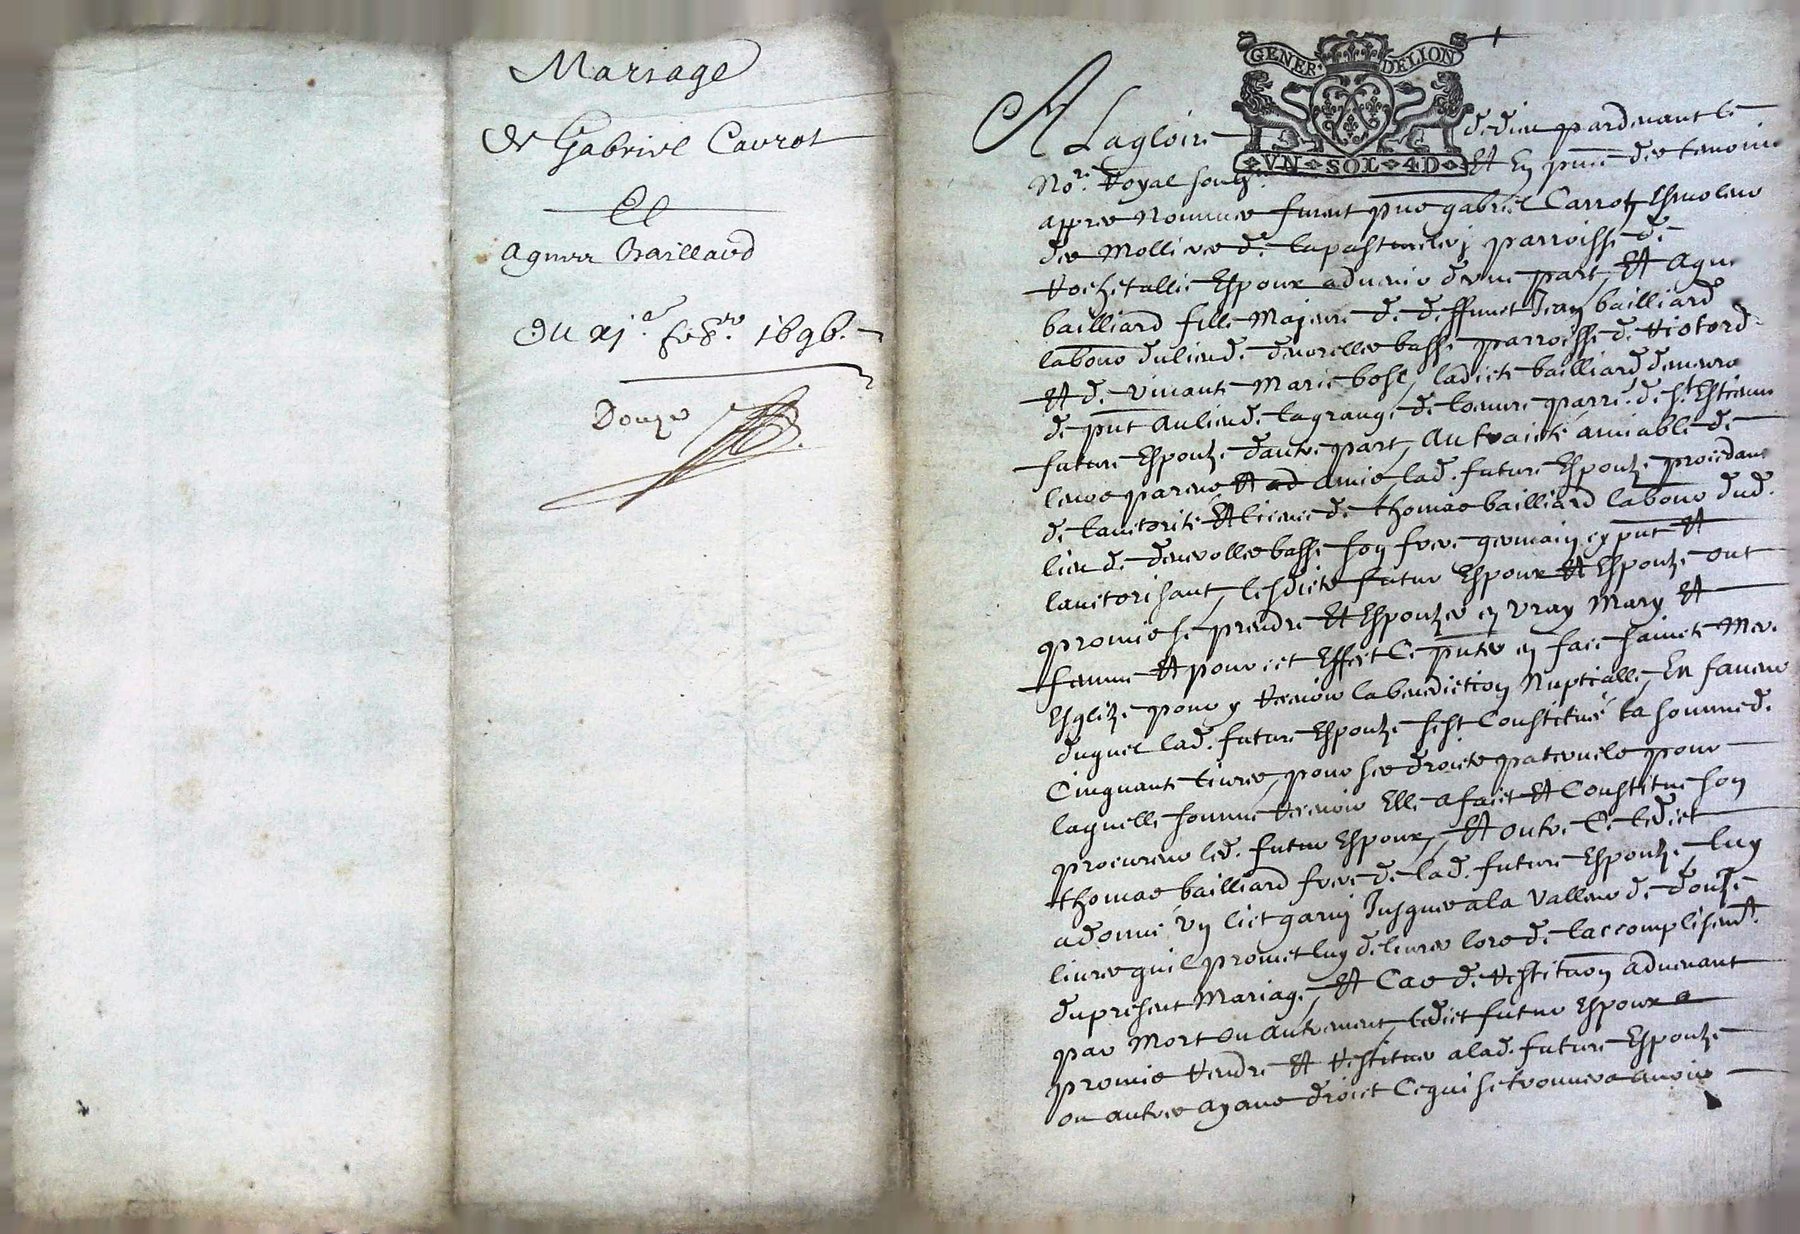 Mariage
de Gabriel Carrot
Et
agnes Baillard
Du xj.e febr. 1696.
Douze
GENER. DELION
VN SOL 4D
A La gloire de dieu pardevant le
Nore. Royal soubz.né Et En pnce des tesmoins
appres Nommes furent pnts gabriel Carrot Esmoleur
de Mollieres de la pasturel parroisse de
Rochetallié Espoux advenir d'une part, Et agne
bailliard fille Majeure de deffunct Jean bailliard
labour. du lieu de basse parroisse de Riotord
Et de vivante Marie bose, ladicte bailliard demeurant
de pnt au lieu de la grange de parre. de St Estienne
future Espouze d'autre part, au traicté amiable de
leurs parens Et amis, lad. future Espouze procedant
de l'auctorité Et licence de thomas bailliard labour. dud.
lieu de basse son frere germain cy pnt Et
l'auctorisant, lesdicts futur Espoux Et Espouze ont
promis se prendre Et Espouzer en vray Mary Et
femme Et pour cet Effect se pnter en face saincte Mere
Esglize pour y recevoir la benediction Nuptialle, En faveur
duquel lad. future Espouze s'est Constitué la somme de
Cinquante livres, pour ses droicts paternels pour
laquelle somme recevoir Elle a faict Et Constitue son
procureur led. futur Espoux, Et outre Ce ledict
thomas bailliard frere de lad. future Espouze, luy
a donné un lict garny Jusques a la valleur de douze
livres qu'il promet luy delivrer lors de l'accomplisemt.
du present Mariage, Et Cas de restitution advenant
par Mort ou autrement, ledict futur Espoux a
promis rendre Et restituer a lad. future Espouze
ou autres ayans droict Ce qui se trouvera avoir